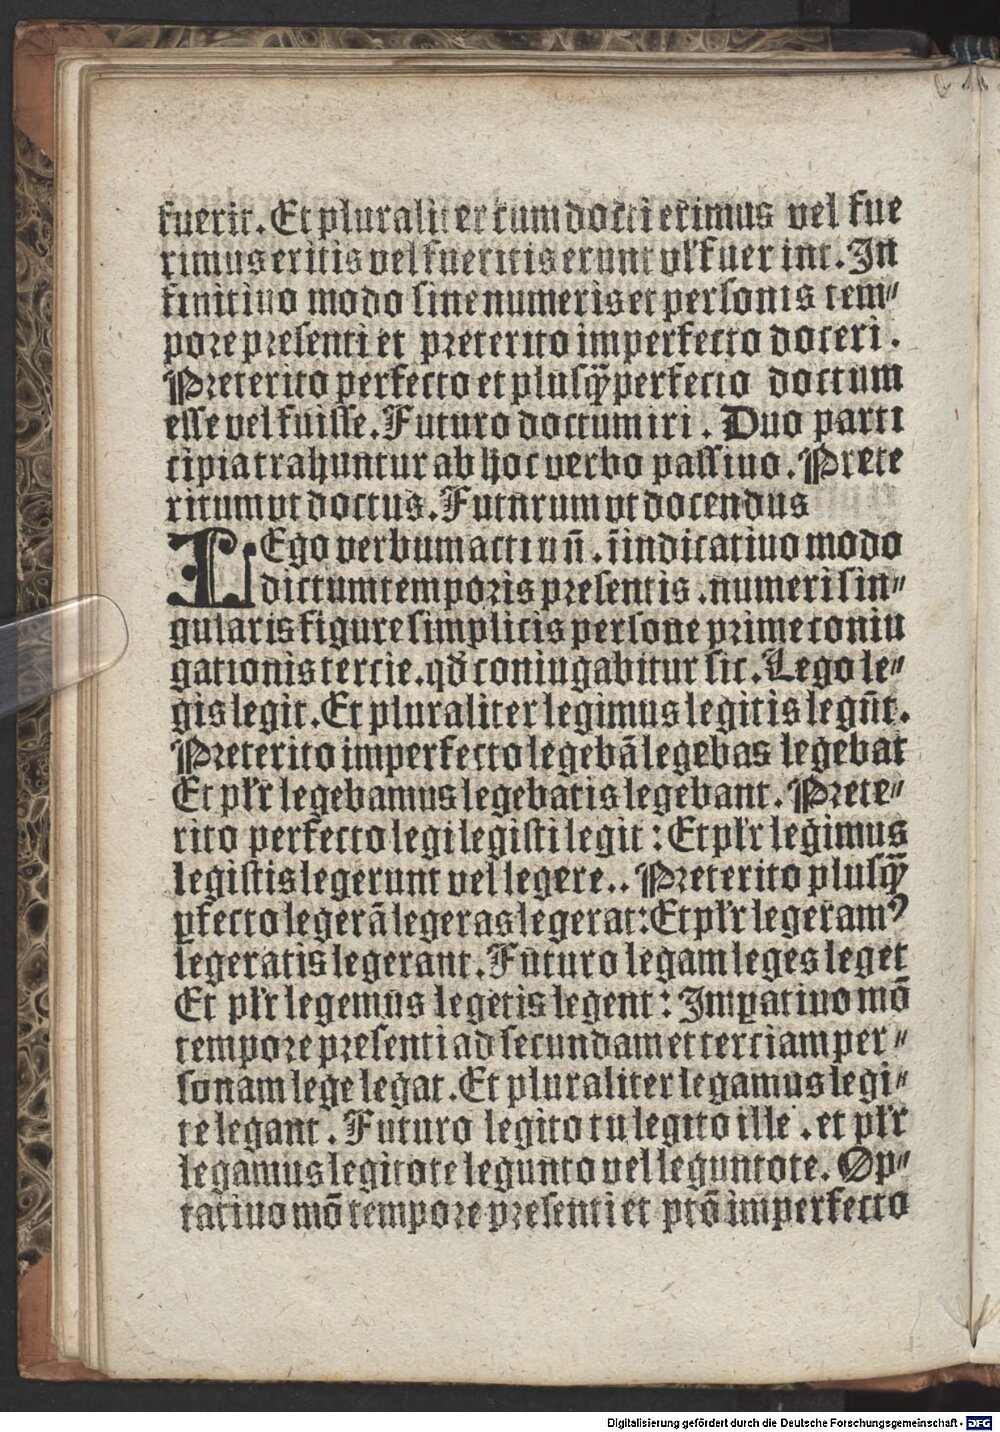 fuerit. Et pluraliter cum docti erimus vel fue
rimus eritis vel fueritis erunt vl̕ fuerint. In
finitiuo modo sine numeris et personis tem⸗
pore presenti et preterito imperfecto doceri.
Preterito perfecto et plusq̃perfecto doctum
esse vel fuisse. Futuro doctum iri. Duo parti
cipia trahuntur ab hoc verbo passiuo. Prete
ritum vt doctus. Futurum vt docendus
LEgo verbum actiuū. īindicatiuo modo
dictum temporis presentis. numeri sin⸗
gularis figure simplicis persone prime coniu
gationis tercie. qd̕ coniugabitur sic. Lego le⸗
gis legit. Et pluraliter legimus legitis legūt.
Preterito imperfecto legebā legebas legebat
Et pl̕r legebamus legebatis legebant. Prete⸗
rito perfecto legi legisti legit: Et pl̕r legimus
legistis legerunt vel legere.. Preterito plusq̃
ꝑfecto legerā legeras legerat: Et pl̕r legeramꝰ
legeratis legerant. Futuro legam leges leget
Et pl̕r legemus legetis legent: Imꝑatiuo mō
tempore presenti ad secundam et terciam per⸗
sonam lege legat. Et pluraliter legamus legi⸗
te legant. Futuro legito tu legito ille. et pl̕r
legamus legitote legunto vel leguntote. Op⸗
tatiuo mō tempore presenti et ptō imperfecto
Digitalisierung gefördert durch die Deutsche Forschungsgemeinschaft - DFG